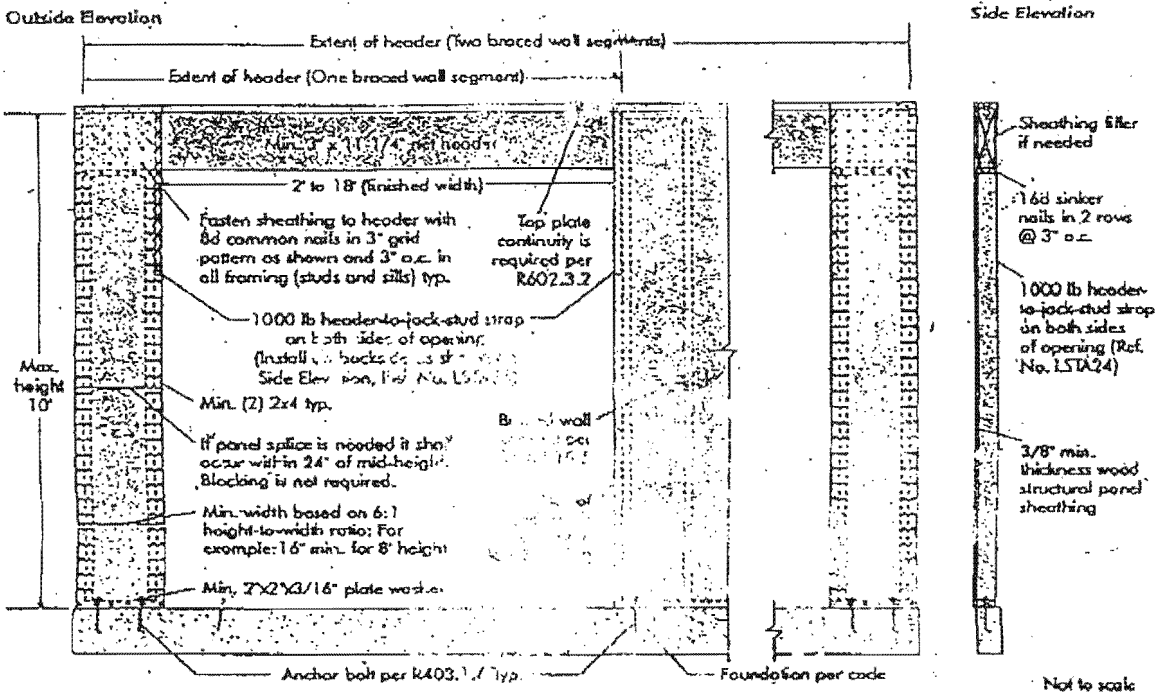 Outside Elevation
Side Elevation
Extent of header (Two braced wall segments)
Extent of header (One braced wall segment)
Min. 3" x 11-1/4" net header
2' to 18' (finished width)
Fasten sheathing to header with
8d common nails in 3" grid
pattern as shown and 3" o.c. in
all framing (studs and sills) typ.
Top plate
continuity is
required per
R602.3.2
1000 lb header-to-jack-stud strap
on both sides of opening
(Install on backside as
Side Elevation, Ref. No.
Max.
height
10'
Min. (2) 2x4 typ.
If panel splice is needed it shall
occur within 24" of mid-height.
Blocking is not required.
wall
per
of
Min. width based on 6:1
height-to-width ratio: For
example: 16" min. for 8' height
Min. 2"x2"x3/16" plate washer
Anchor bolt per R403.1. Typ.
Foundation per code
Sheathing filler
if needed
16d sinker
nails in 2 rows
@ 3" o.c.
1000 lb header-
to-jack-stud strap
on both sides
of opening (Ref.
No. LSTA24)
3/8" min.
thickness wood
structural panel
sheathing
Not to scale